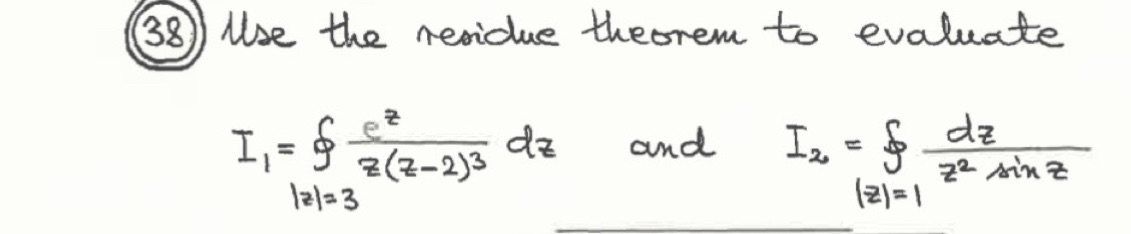 (38) Use the residue theorem to evaluate
I₁ = ∮_{|z|=3} e^z / (z(z-2)³) dz and I₂ = ∮_{|z|=1} dz / (z² sin z)